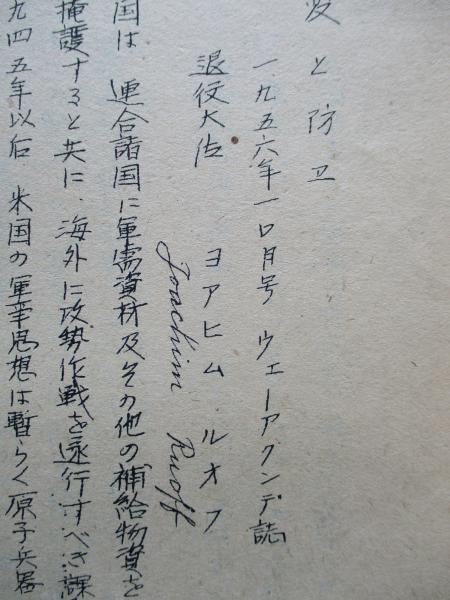 と防卫
一九五六年一〇月号 ウェーアクンデ誌
退役大佐 ヨアヒム ルオフ
Joachim Ruoff
国は 連合諸国に軍需資材及その他の補給物資を
掩護すると共に、海外に攻勢作戦を遂行すべき課
九四五年以后 米国の軍事思想は暫らく原子兵器